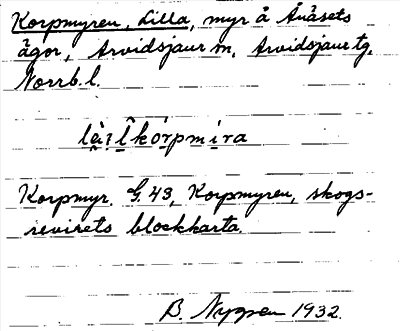 Korpmyren, Lilla, myr å Ånäsets
ägor, Arvidsjaur sn, Arvidsjaur tg,
Norrb. l.
Korpmyr. G. 43, Korpmyren, skogs-
revirets blockkarta.
B. Nygren 1932.